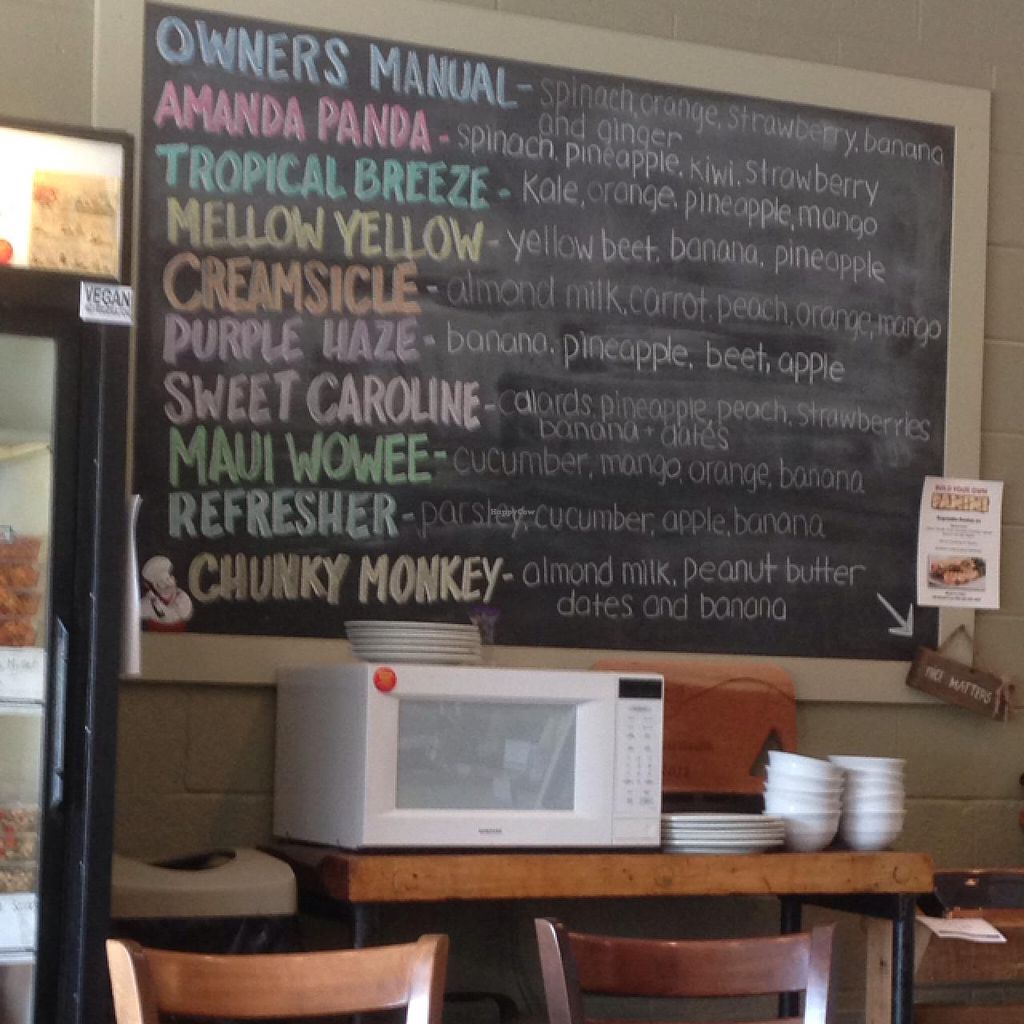 OWNERS MANUAL- spinach, orange, strawberry, banana
and ginger
AMANDA PANDA - spinach, pineapple, kiwi, strawberry
TROPICAL BREEZE - Kale, orange, pineapple, mango
MELLOW YELLOW - yellow beet, banana, pineapple
CREAMSICLE - almond milk, carrot, peach, orange, mango
PURPLE HAZE - banana, pineapple, beet, apple
SWEET CAROLINE - collards, pineapple, peach, strawberries
banana + dates
MAUI WOWEE- cucumber, mango, orange, banana
REFRESHER - parsley, cucumber, apple, banana
CHUNKY MONKEY- almond milk, peanut butter
dates and banana
VEGAN
HappyCow
BUILD YOUR OWN
PANINI
MATTERS